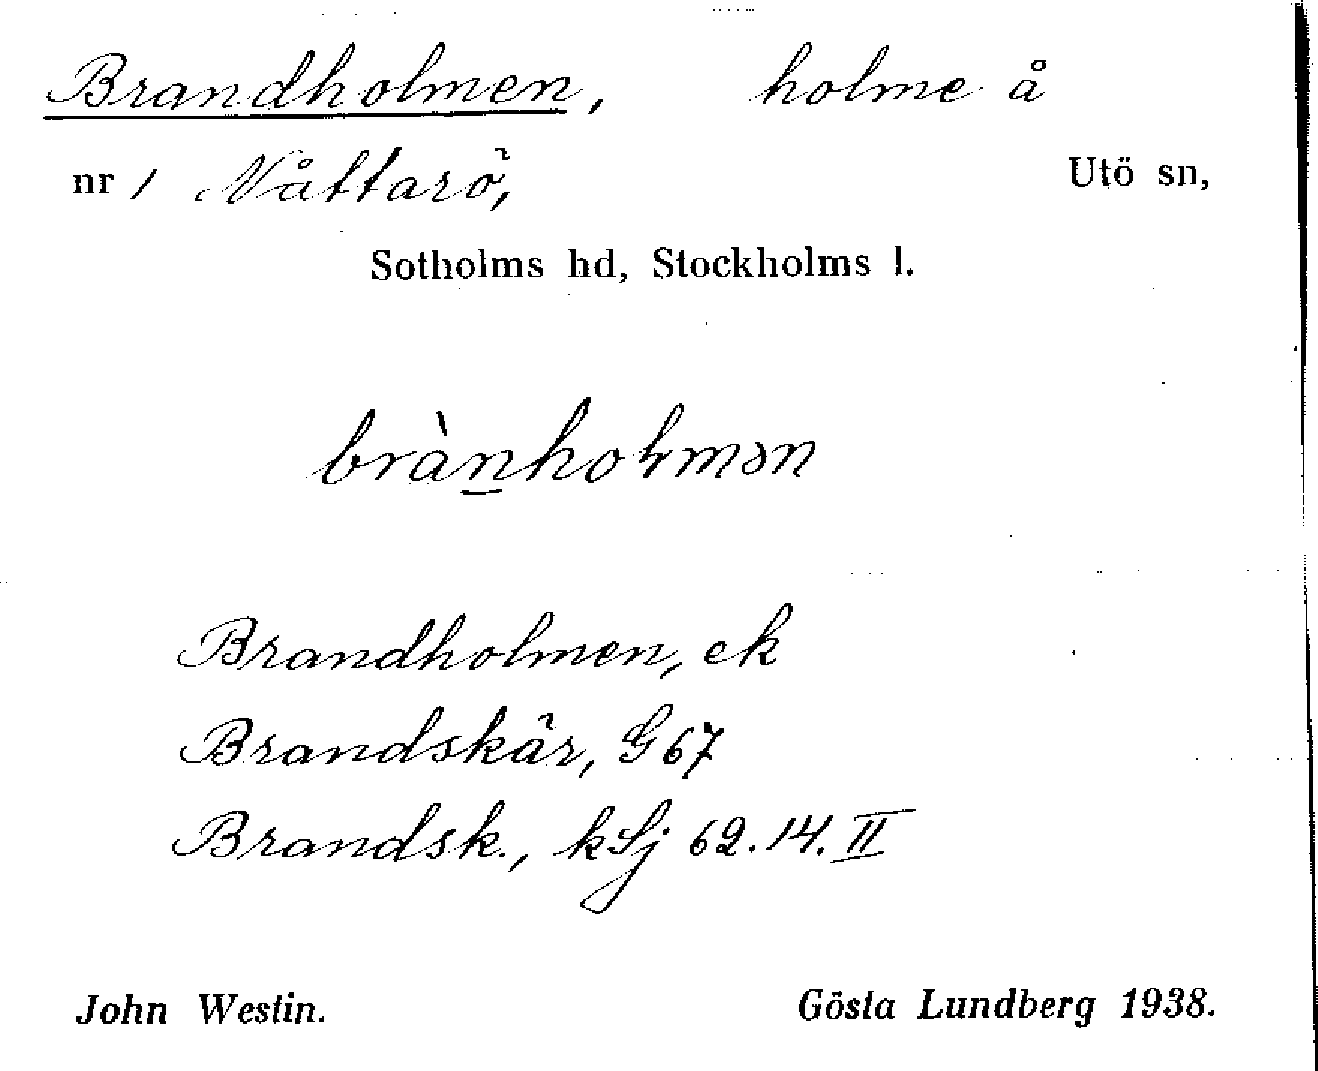 Brandholmen, holme å
nr 1 Nåttarö, Utö sn,
Sotholms hd, Stockholms l.
bràn̲holmən
Brandholmen, ek
Brandskär, G 67
Brandsk., kSj 62.14.II
John Westin. Gösta Lundberg 1938.